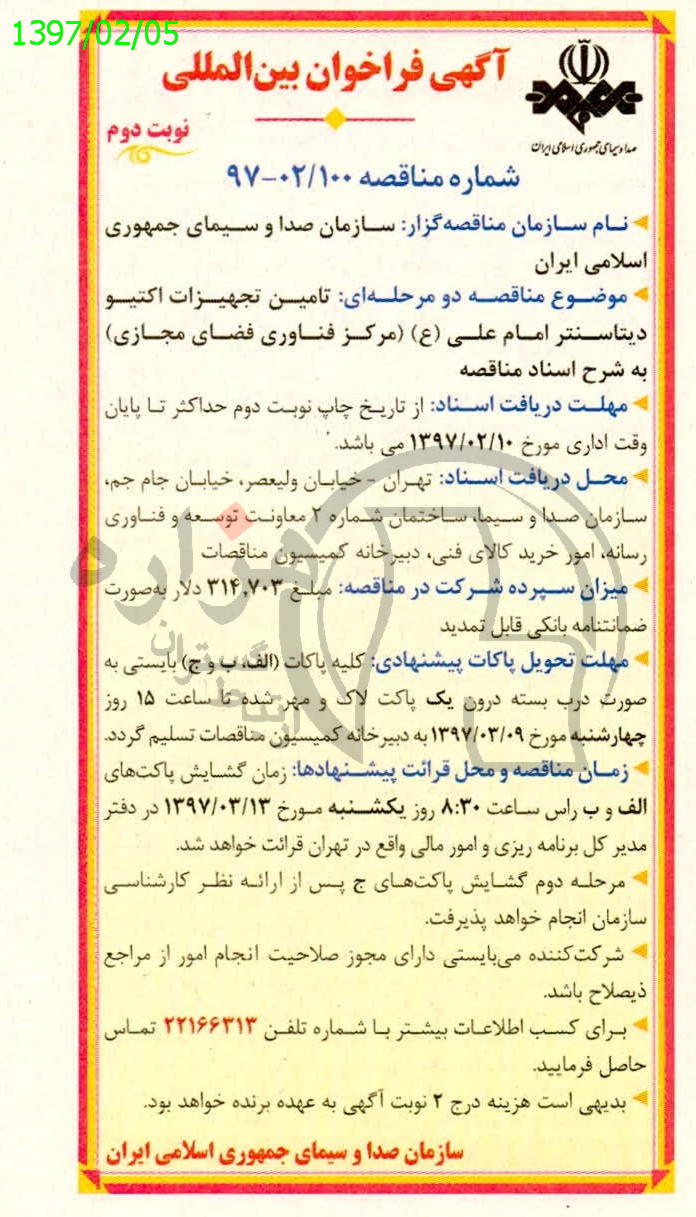 1397/02/05
آگهی فراخوان بین‌المللی
نوبت دوم
صدا و سیمای جمهوری اسلامی ایران
شماره مناقصه ۰۲/۱۰۰-۹۷
نام سازمان مناقصه‌گزار: سازمان صدا و سیمای جمهوری
اسلامی ایران
موضوع مناقصه دو مرحله‌ای: تامین تجهیزات اکتیو
دیتاسنتر امام علی (ع) (مرکز فناوری فضای مجازی)
به شرح اسناد مناقصه
مهلت دریافت اسناد: از تاریخ چاپ نوبت دوم حداکثر تا پایان
وقت اداری مورخ ۱۳۹۷/۰۲/۱۰ می باشد.
محل دریافت اسناد: تهران - خیابان ولیعصر، خیابان جام جم،
سازمان صدا و سیما، ساختمان شماره ۲ معاونت توسعه و فناوری
رسانه، امور خرید کالای فنی، دبیرخانه کمیسیون مناقصات
میزان سپرده شرکت در مناقصه: مبلغ ۳۱۴,۷۰۳ دلار به‌صورت
ضمانتنامه بانکی قابل تمدید
مهلت تحویل پاکات پیشنهادی: کلیه پاکات (الف، ب و ج) بایستی به
صورت درب بسته درون یک پاکت لاک و مهر شده تا ساعت ۱۵ روز
چهارشنبه مورخ ۱۳۹۷/۰۳/۰۹ به دبیرخانه کمیسیون مناقصات تسلیم گردد.
زمان مناقصه و محل قرائت پیشنهادها: زمان گشایش پاکت‌های
الف و ب راس ساعت ۸:۳۰ روز یکشنبه مورخ ۱۳۹۷/۰۳/۱۳ در دفتر
مدیر کل برنامه ریزی و امور مالی واقع در تهران قرائت خواهد شد.
مرحله دوم گشایش پاکت‌های ج پس از ارائه نظر کارشناسی
سازمان انجام خواهد پذیرفت.
شرکت‌کننده می‌بایستی دارای مجوز صلاحیت انجام امور از مراجع
ذیصلاح باشد.
برای کسب اطلاعات بیشتر با شماره تلفن ۲۲۱۶۶۳۱۳ تماس
حاصل فرمایید.
بدیهی است هزینه درج ۲ نوبت آگهی به عهده برنده خواهد بود.
سازمان صدا و سیمای جمهوری اسلامی ایران
هزاره